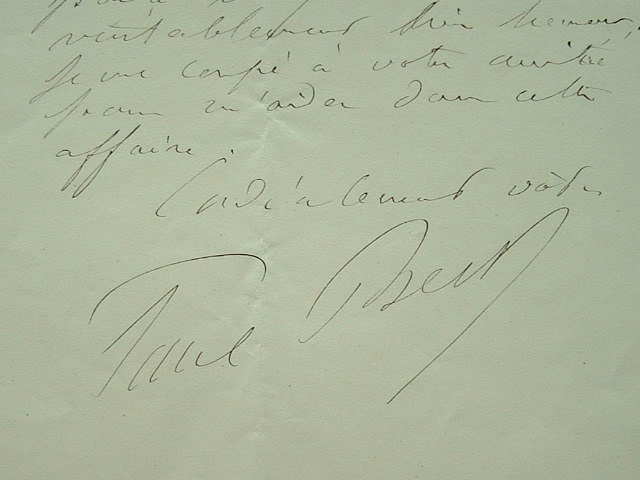 véritablement bien heureux,
Je me confie à votre amitié
pour m'aider dans cette
affaire.
Cordialement vôtre
Paul Bert